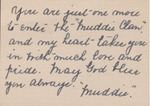 You are just one more
to enter the "Muddie Clan",
and my heart takes you
in with much love and
pride. May God bless
you always.
"Muddie".